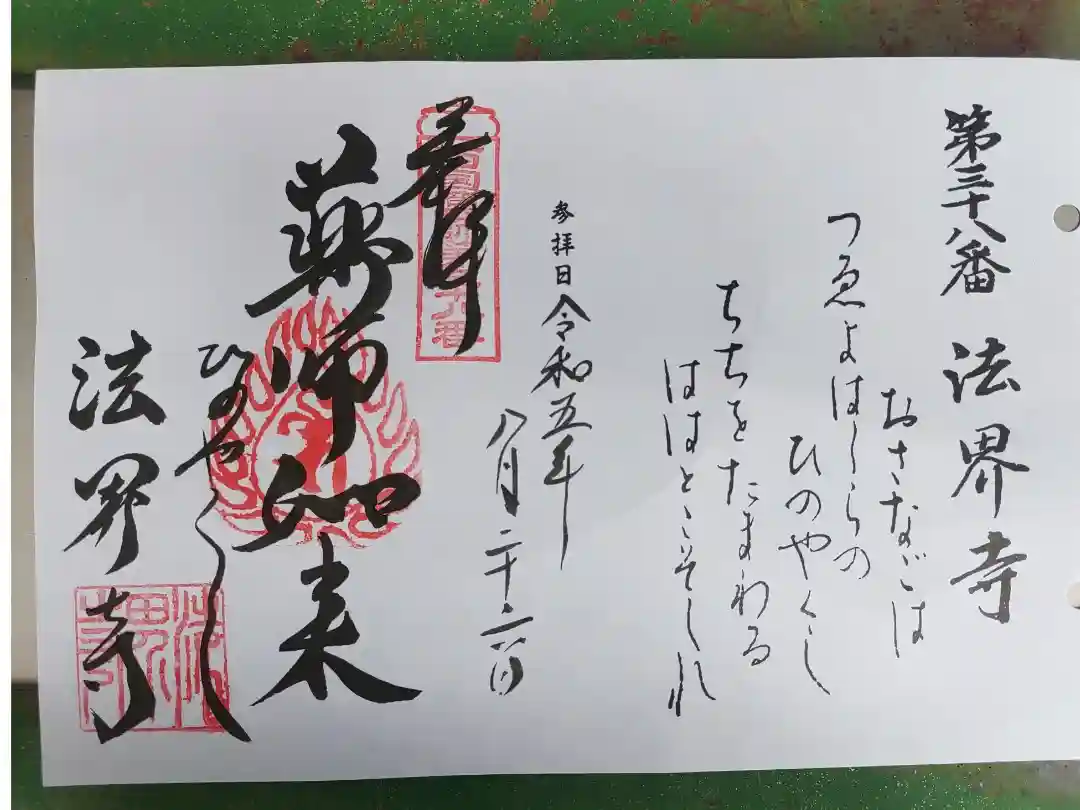 第三十八番 法界寺
おさなごは
つゑよはしらの
ひのやくし
ちちをたまわる
ははとこそしれ
参拝日 令和五年
八月
奉拝
西国薬師第三十八番
薬師如来
ひのやくし
法界寺
法界寺